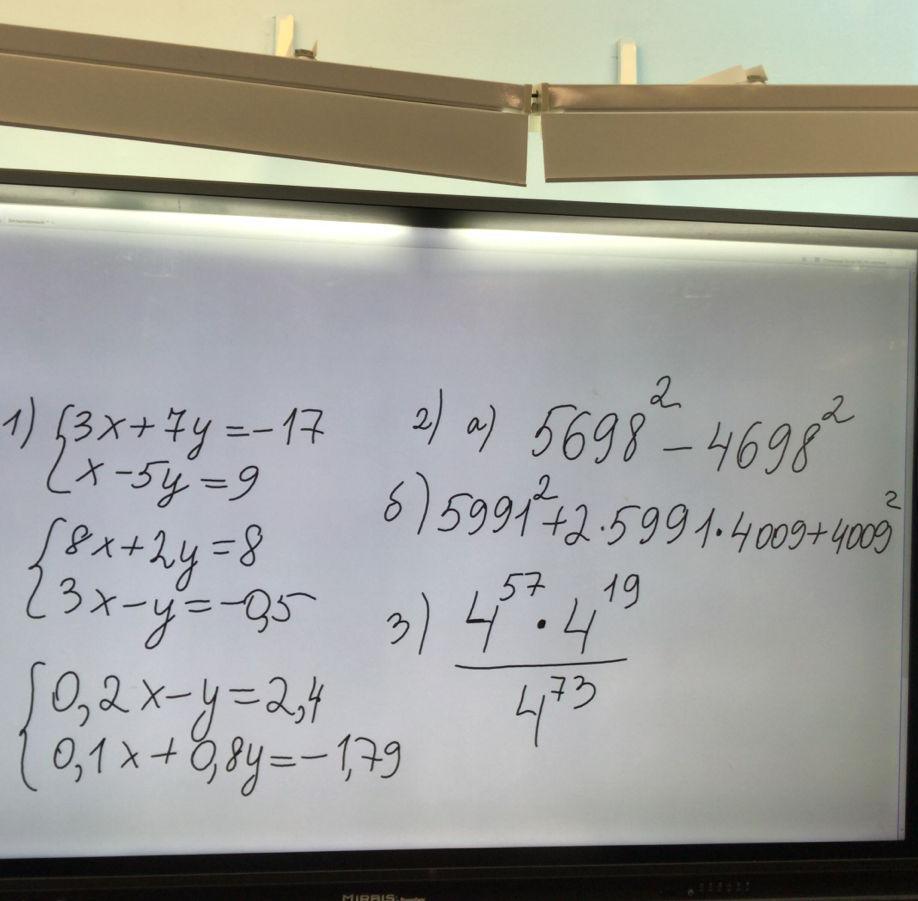 1) {3x+7y=-17
x-5y=9
{8x+2y=8
3x-y=-0,5
{0,2x-y=2,4
0,1x+0,8y=-1,79
2) а) 5698²-4698²
б) 5991²+2·5991·4009+4009²
3) 4⁵⁷·4¹⁹
4⁷³